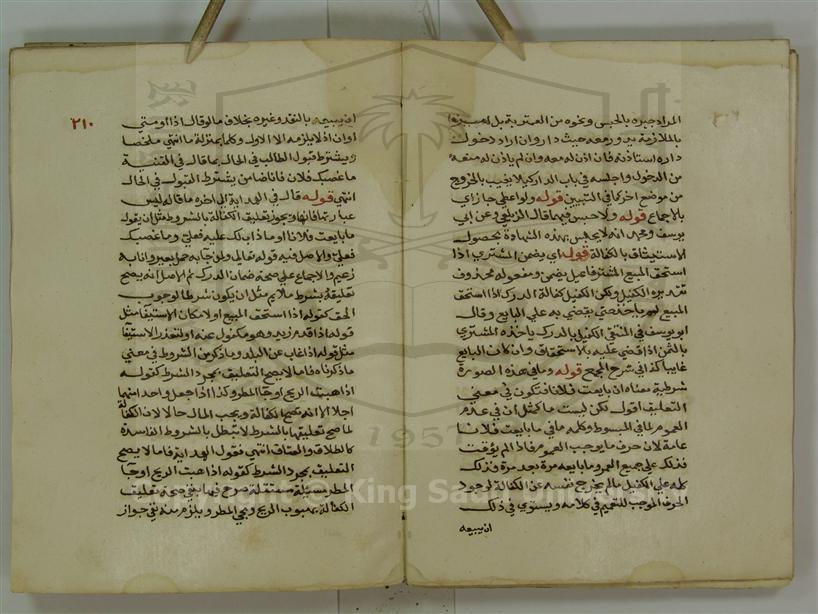 المراد جبره بالحبس ونحوه من العقوبة بل امره
بالملازمة يدور معه حيث دار وان اراد دخول
داره استاذنه فان اذن له معه وان لم ياذن له منعه
من الدخول واجلسه في باب الدار كيلا يغيب بالخروج
من موضع اخر كما في التبيين قوله ولو اعطى جاز اي
بالاجماع قوله ولا حبس فيهما قال الزيلعي وعن ابي
يوسف ومحمد انه لا يحبس بهذه الشهادة لحصول
الاستيثاق بالكفالة قوله اي يضمن المشتري اذا
استحق المبيع المشتري فاعل يضمن ومفعوله محذوف
تقديره الكفيل ولكن الكفيل كفالة الدرك اذا استحق
المبيع لم ياخذ حتى يقضي به على البايع وقال
ابو يوسف في المنتقى الكفيل بالدرك ياخذه المشتري
بالثمن اذا قضي عليه بالاستحقاق وان كان البايع
غايبا كذا في شرح المجمع قوله وما في هذه الصورة
شرطية معناه ان بايعت فلانا فتكون في معنى
التعليق اقول لكن ليست ما كمثل ان في عدم
العموم لما في المبسوط وكلمه ما في بايعت فلانا
عامة لان حرف ما يوجب العموم فاذا لم يؤقت
فذلك على جميع العمر وما بايعه مرة بعد مرة فذلك
كله على الكفيل ما لم يخرج نفسه عن الكفالة لوجود
الحرف الموجب للتعميم في كلامه ويستوي في ذلك
ان يبيعه
٢١٠
ان يبيعه بالنقد وغيره بخلاف ما لو قال اذا او متى
او ان اذ لا يلزمه الا الاول وكلما بمنزلة ما انتهى ملخصا
ويشترط قبول الطالب في الحال بما قال في القنية
ما غصبك فلان فانا ضامن يشترط القبول في الحال
انتهى قوله قال في الهداية الى اخره ما قاله ليس
عبارتها فانها ويجوز تعليق الكفالة بالشروط مثل ان يقول
ما بايعت فلانا او ما ذاب لك عليه فعلي وما غصبك
فعلي والاصل فيه قوله تعالى ولمن جا به حمل بعير وانا به
زعيم والاجماع على صحة ضمان الدرك ثم الاصل انه يصح
تعليقها بشرط ملايم مثل ان يكون شرطا لوجوب
الحق كقوله اذا استحق المبيع او لامكان الاستيفا مثل
قوله اذا قدم زيد وهو مكفول عنه او لتعذر الاستيفا
مثل قوله اذا غاب عن البلد وما ذكر من الشروط في معنى
ما ذكرناه فاما لا يصح التعليق بمجرد الشرط كقوله
اذا هبت الريح او جا المطر وكذا اذا جعل واحد منهما
اجلا الا انه تصح الكفالة ويجب المال حالا لان الكفالة
لما صح تعليقها بالشرط لا تبطل بالشروط الفاسدة
كالطلاق والعتاق انتهى فقول الهداية فاما لا يصح
التعليق بمجرد الشرط كقوله اذا هبت الريح او جا
المطر مسئلة مستقلة صرح فيها بنفي صحة تعليق
الكفالة بهبوب الريح ومجي المطر ويلزم منه نفي جواز
1957
Copyright © King Saud University